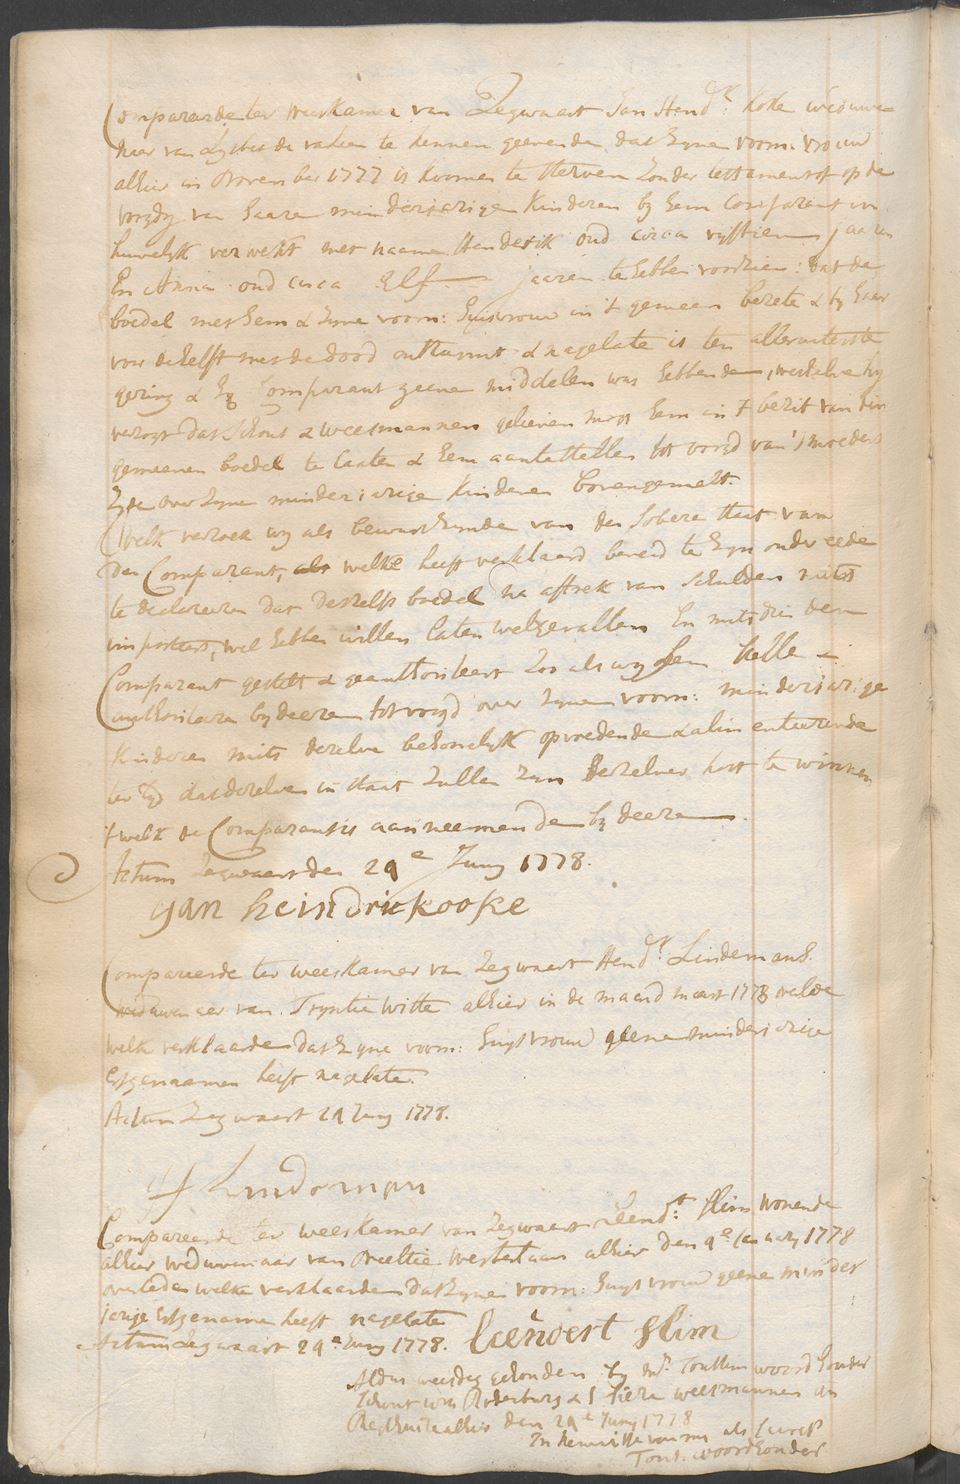 Compareerde ter weeskamer van Zegwaart Jan Hend.k Koke weduwe
naer van Lysbet de te kennen geevende dat zyne voorn: vrouw
alhier in November 1777 is koomen te sterven zonder testament of op de
voogdy van haare minderjarige kinderen by hem Comparant in
huwelyk verwekt met naame Hendrik oud circa vyftien jaaren
En Anna oud circa Elf jaaren te hebben voorzien: dat de
boedel met hem & zyne voorn: huisvrouw in 't gemeen bezete & by haar
voor de helft met de dood ontruimt & nagelate is ten alleruiterste
gering & hy Comparant geene middelen was hebbende, weshalve hy
verzogt dat Schout & weesmannen gelieven mogt hem in 't bezit van dien
gemeenen boedel te laaten & hem aantestellen tot voogd van 's moeders
zyde over zyne minderjarige kinderen bovengemelt.
Welk verzoek wy als bewust zynde van den sobere staat van
den Comparant, als welke heeft verklaard bereid te zyn onder eede
te declareren dat deszelfs boedel na aftrek van schulden niets
importeert, wel hebben willen laten welgevallen En mitsdien den
Comparant gestelt & geauthoriseert zoo als wy hem stelle &
authoriseren by deezen tot voogd over zyne voorn: minderjarige
kinderen mits dezelve behoorlyk opvoedende & alimenteerende
ter tyd dat dezelven in staat zullen zyn derzelver kost te winnen
't welk de Comparant is aanneemende by deezen.
Actum Zegwaart den 29e Juny 1778.
Jan heindrik kooke
Compareerde ter weeskamer van Zegwaart Hend.k Lindeman E.
weduwenaer van Tryntie Witte alhier in de maand maart 1778
welke verklaarde dat zyne voorn: huysvrouw geene minderjarige
erfgenaamen heeft nagelate.
Actum Zegwaart 29 Juny 1778.
H Lindeman
Compareerde ter weeskamer van Zegwaart Leend.t Slim wonende
alhier weduwenaar van Neeltie alhier den 9e January 1778
overleden welke verklaarde dat zyne voorn: huysvrouw geene minder
jarige erfgename heeft nagelate
Actum Zegwaart 29e Juny 1778. Leendert Slim
Aldus weesdag gehouden by Mr. Toussein woordhouder
Schout & weesmannen in
Regthuise alhier den 29e Juny 1778
In kennisse van my als Secrets
Tous. woordhouder